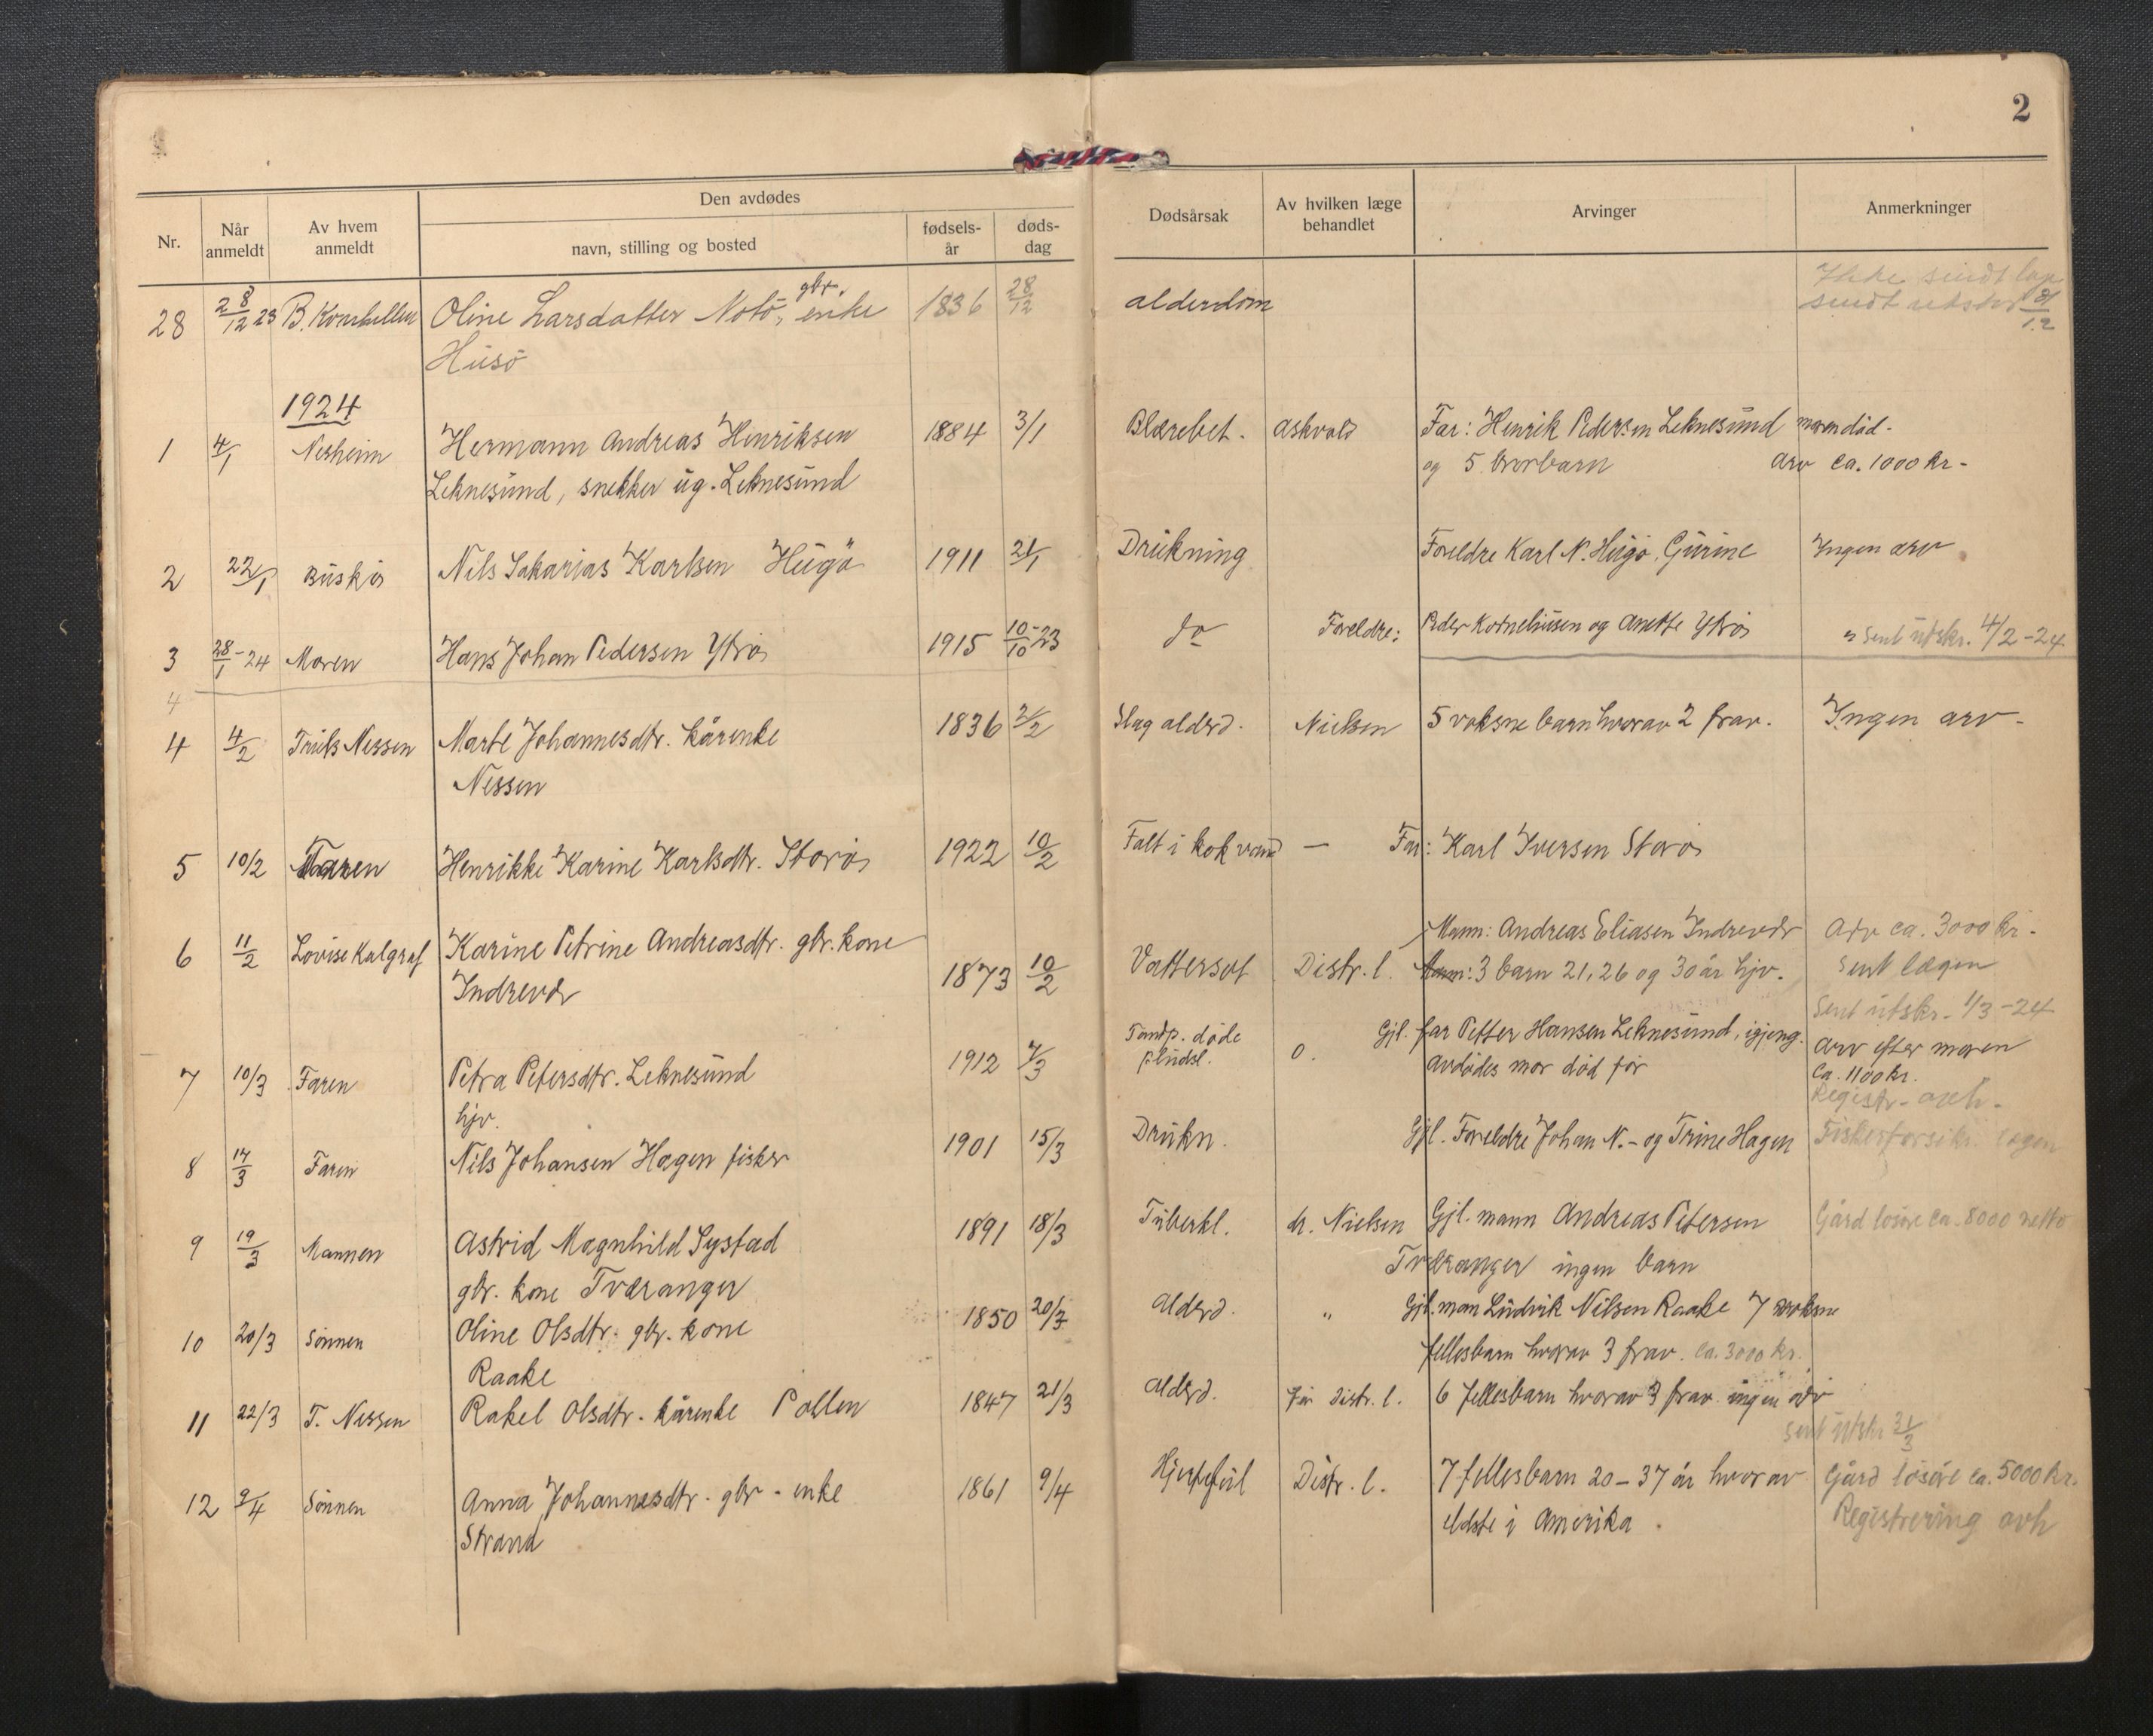 2
Nr.
Når anmeldt
Av hvem anmeldt
Den avdødes
navn, stilling og bosted
fødsels-år
døds-dag
Dødsårsak
Av hvilken læge behandlet
Arvinger
Anmerkninger
28 28/12 23 B. Oline Larsdatter Notö, gbr. enke 1836 28/12 alderdom Ikke sendt
Husö sendt 31/12
1924
1 4/1 Nesheim Hermann Andreas Henriksen 1884 3/1 Blærebet. Askvold Far: Henrik Pedersen Leknesund moren død.
Leknesund, snekker ug. Leknesund og 5 arv ca. 1000 kr.
2 22/1 Buskø Nils Sakarias Karlsen Hugø 1911 21/1 Drukning Foreldre Karl N. Hugø, Gurine Ingen arv
3 28/1-24 Moren Hans Johan Pedersen Ytrø 1915 10/10-23 do Foreldre: Peder Korneliusen og Anette Ytrø " Sent utskr. 4/2-24
4
4 4/2 Truls Nessen Marte Johannesdtr. kårenke 1836 2/2 Slag alderd. Nielsen 5 voksne barn hvorav 2 frav. Ingen arv.
Nessen
5 10/2 Faren Henrikke Karine Karlsdtr. Storø 1922 10/2 Falt i kok vand — Far: Karl Iversen Storø
6 11/2 Lovise Kalgraf Karine Petrine Andreasdtr. gbr. kone Mann: Andreas Eliasen Indrevær Arv ca. 3000 kr.
Indrevær 1873 10/2 Vattersot Distr. l. 3 barn 21, 26 og 30 år hjv. Sent lægen
Sent utskr. 1/3-24
7 10/3 Faren Petra Petersdtr. Leknesund 1912 7/3 døde pludsl. o. Gjl. far Petter Hansen Leknesund, igjeng. Arv efter moren
hjv. avdødes mor død før ca. 1100 kr.
Registr. avh.
8 17/3 Faren Nils Johansen Hagen fisker 1901 15/3 Drukn. Gjl. Foreldre Johan N. og Trine Hagen Fiskerforsikr. lægen
9 19/3 Mannen Astrid Magnhild Systad 1891 18/3 Tuberkl. dr. Nielsen Gjl. mann Andreas Petersen Gård losøre ca. 8000 netto
gbr. kone Tværanger Tværanger ingen barn
10 20/3 Sønnen Oline Olsdtr. gbr. kone 1850 20/3 Alderd. " Gjl. man Ludvik Nilsen Raake 7 voksne
Raake fellesbarn hvorav 3 frav. ca. 3000 kr.
11 22/3 T. Nessen Rakel Olsdtr. kårenke Pollen 1847 21/3 Alderd. før distr. l. 6 fellesbarn hvorav 3 frav. ingen arv
sent utskr 31/3
12 9/4 Sønnen Anna Johannesdtr. gbr. enke 1861 9/4 Hjertefeil Distr. l. 7 fellesbarn 20-37 år hvorav Gård løsøre ca. 5000 kr.
Strand eldste i Amerika. Registrering avh